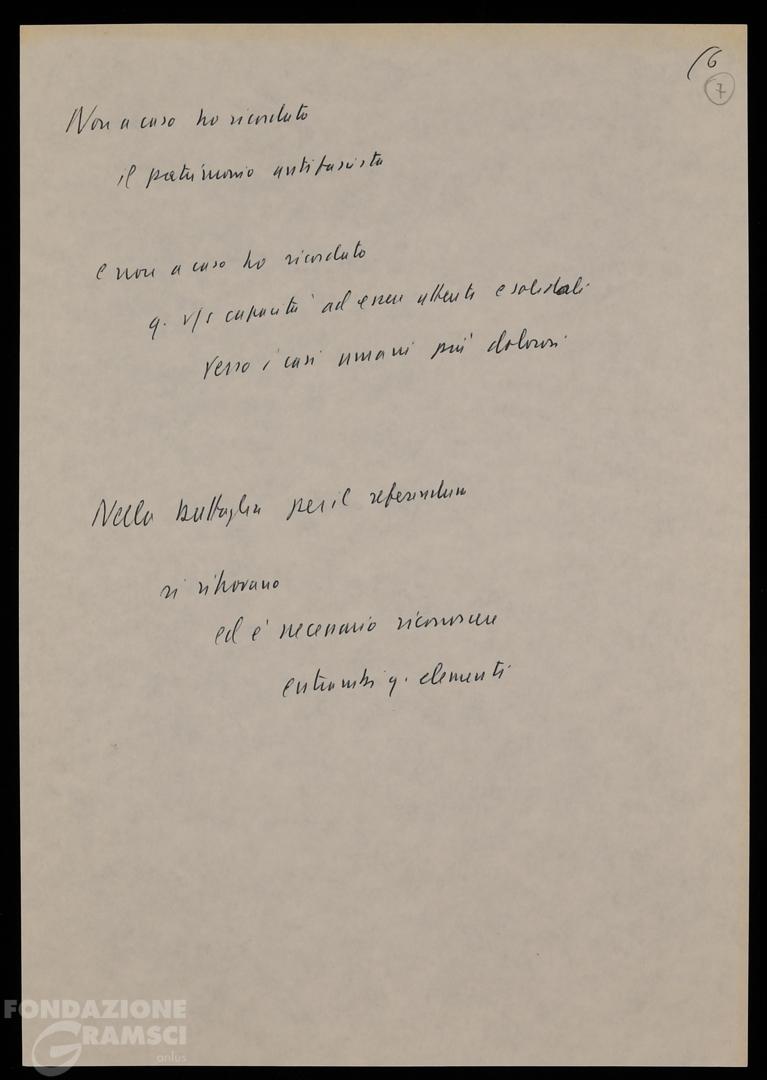 (6
7
Non a caso ho ricordato
il patrimonio antifascista
e non a caso ho ricordato
q. v/s capacità ad essere attenti e solidali
verso i casi umani più dolorosi
Nella battaglia per il referendum
si ritrovano
ed è necessario riconoscere
entrambi q. elementi
FONDAZIONE
GRAMSCI
onlus